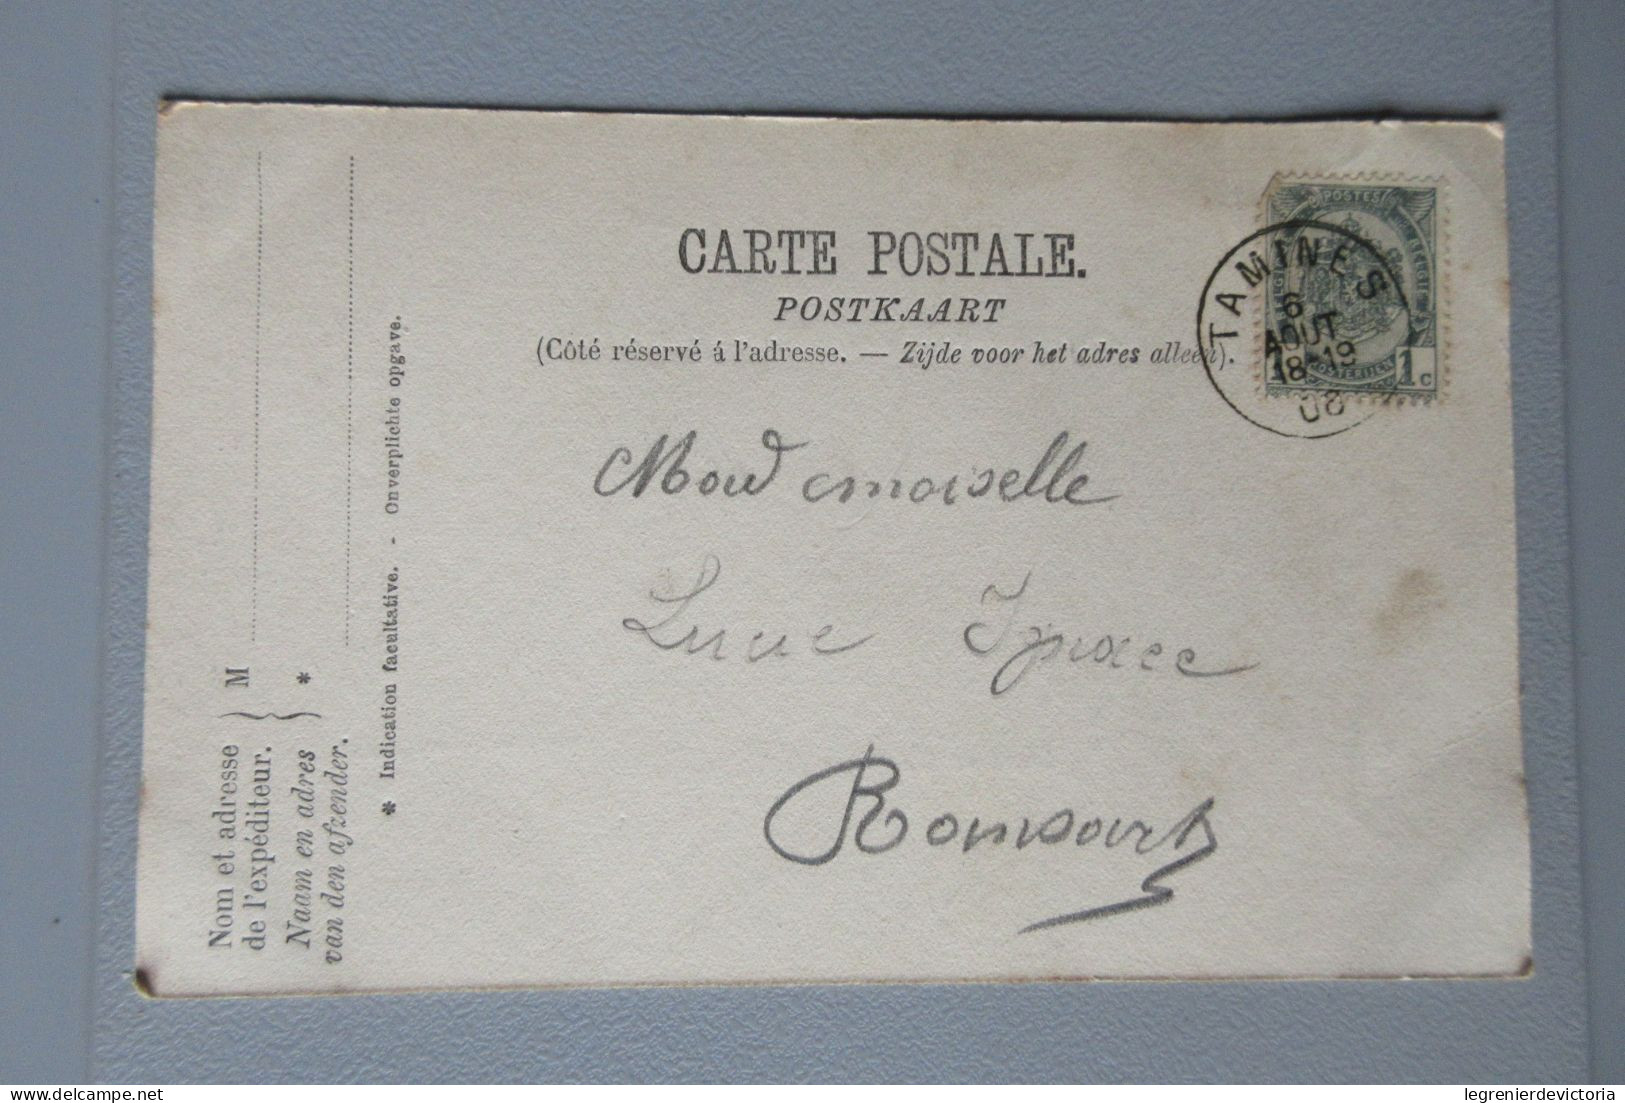 CARTE POSTALE.
POSTKAART
(Côté réservé á l'adresse. — Zijde voor het adres alleen).
POSTES
BELGIË BELGIQUE
POSTERIJEN 1 C
TAMINES
6
AOUT
18-19
08
Mademoiselle
Ransart
Nom et adresse
de l'expéditeur.
Naam en adres
van den afzender.
M
*
* Indication facultative. - Onverplichte opgave.
legrenierdevictoria
delcampe.net